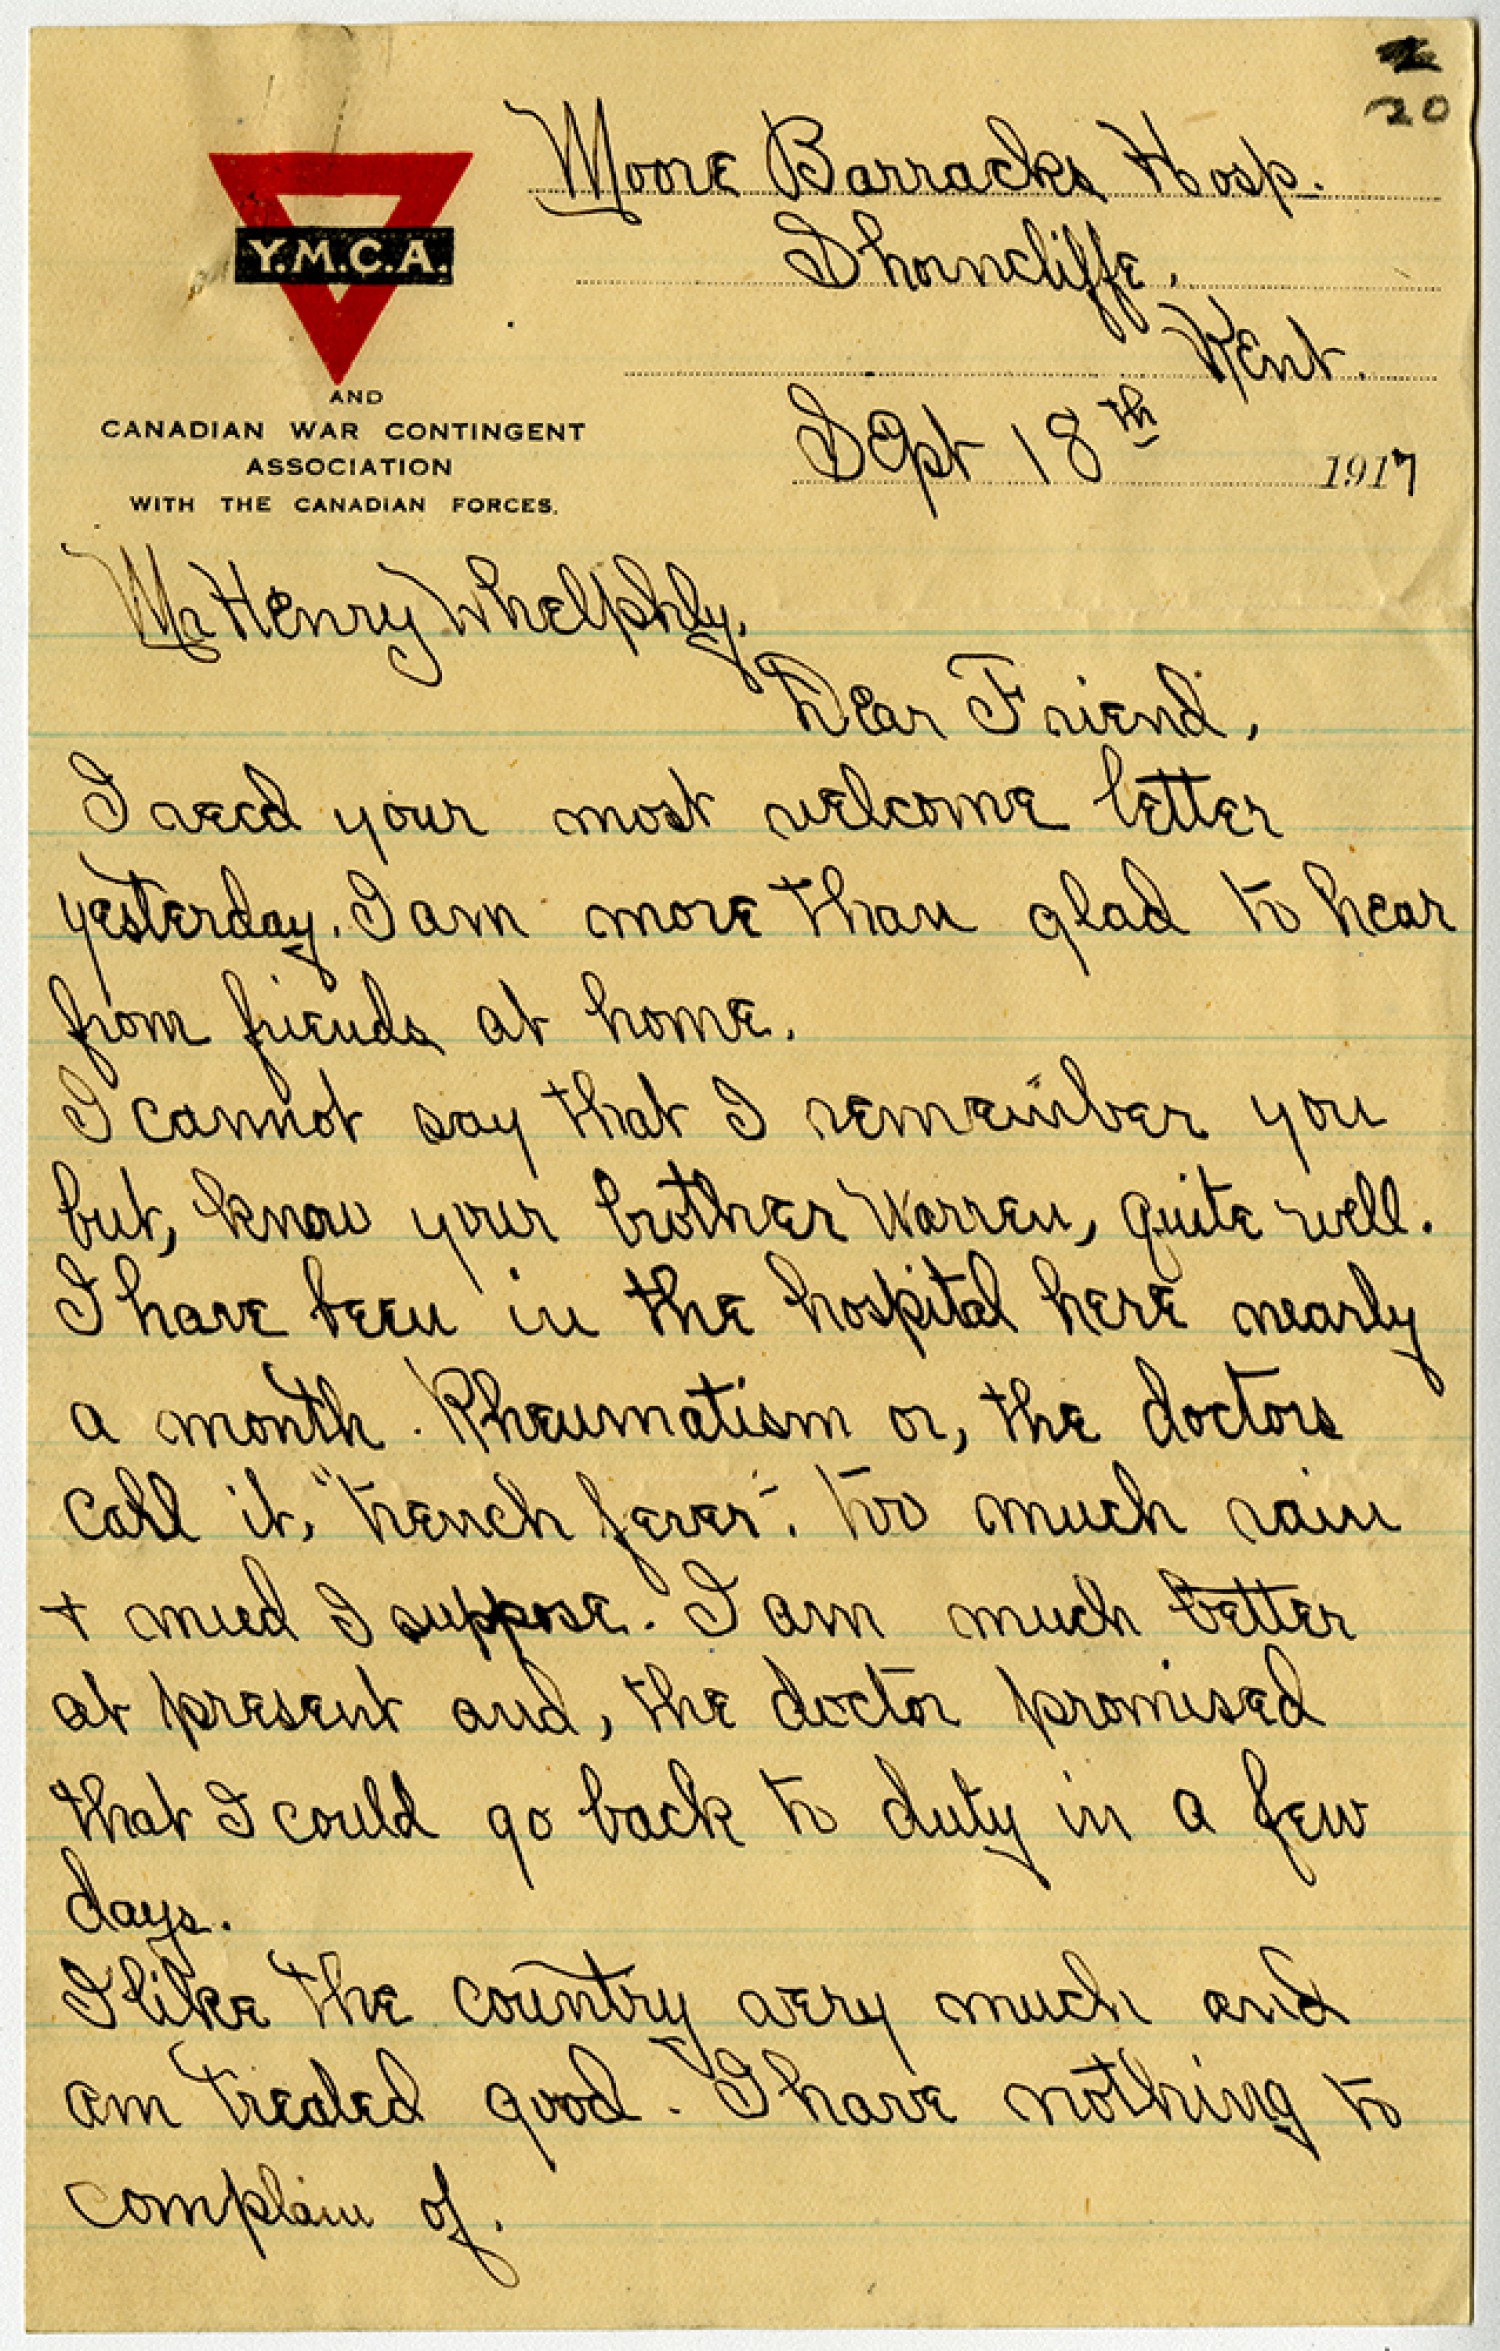 20
Moore Barracks Hosp.
Shorncliffe,
Kent.
Sept 18th 1917
Y.M.C.A.
AND
CANADIAN WAR CONTINGENT
ASSOCIATION
WITH THE CANADIAN FORCES.
Mr Henry Whelphly,
Dear Friend,
I recd your most welcome letter
yesterday. I am more than glad to hear
from friends at home.
I cannot say that I remember you
but, know your brother Warren, quite well.
I have been in the hospital here nearly
a month. Rheumatism or, the doctors
call it, "trench fever". too much rain
+ mud I suppose. I am much better
at present and, the doctor promised
that I could go back to duty in a few
days.
I like the country very much and
am treated good. I have nothing to
complain of.